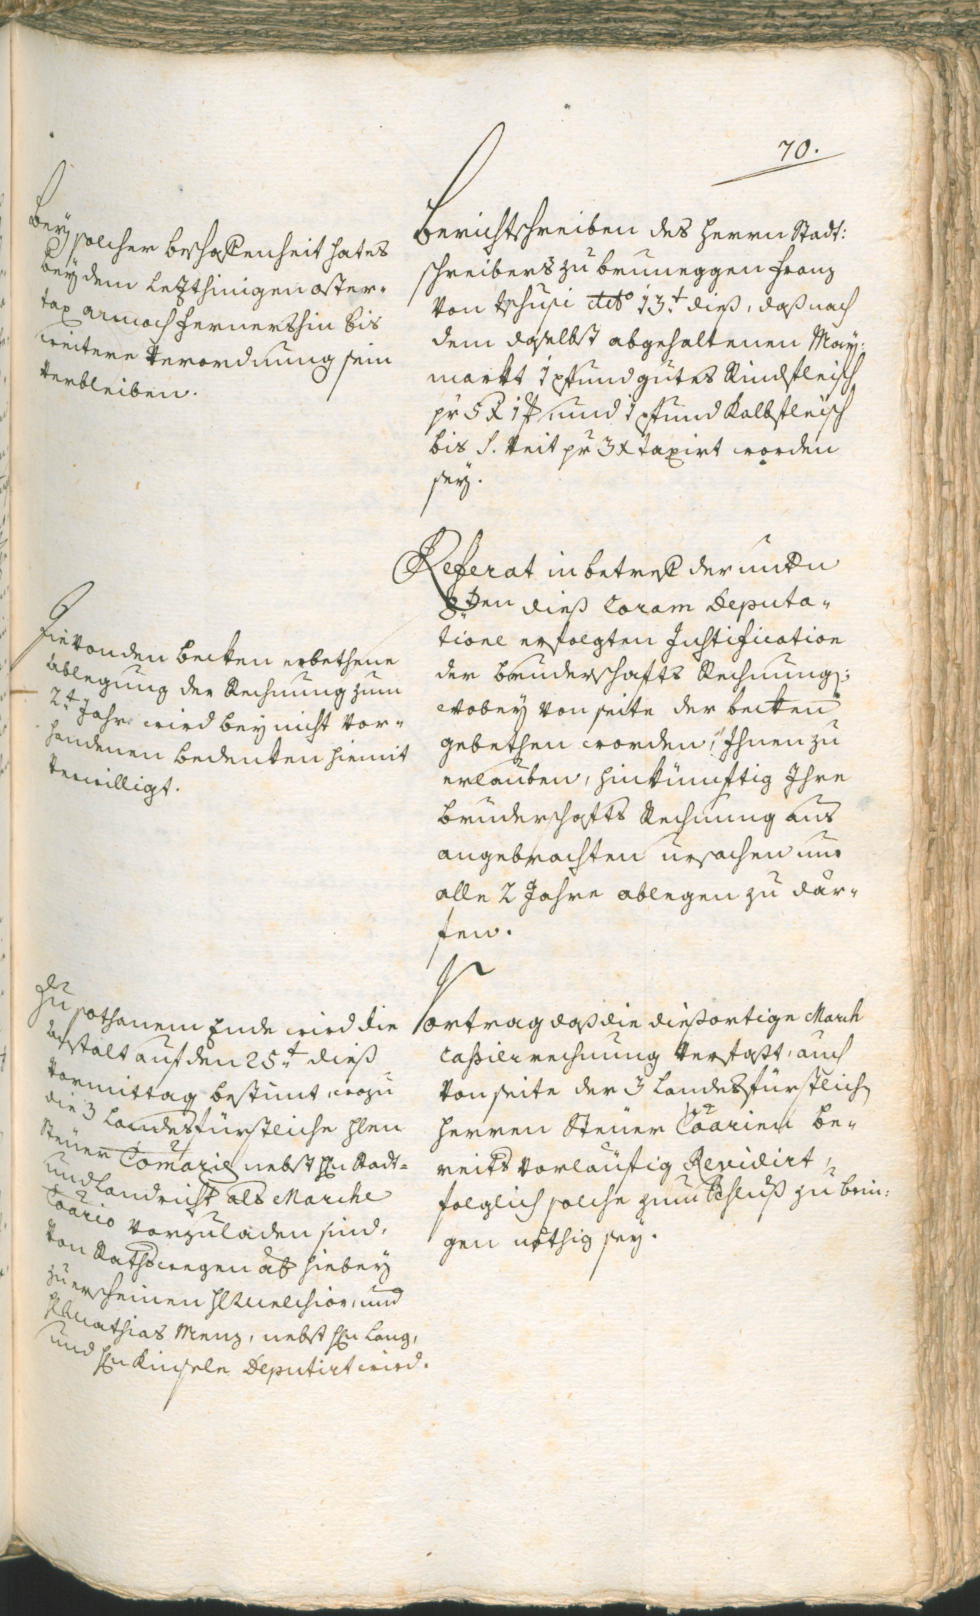 70.
Bey solcher beschaffenheit hat es
bey dem letzthinigen oster-
tax annoch fernershin bis
weitere verordnung sein
verbleiben.
Berichtschreiben des herrn Stadt:
schreibers zu bruneggen franz
von tschusi dtto 13t dieß, daß nach
dem daselbst abgehaltenen May:
markt 1 pfund gutes Rindfleisch
pr 5 x 1 und 1 pfund Kalbfleisch
bis S. Veit pr 3 x taxirt worden
sey.
Die von den becken erbethene
ablegung der Rechnung zum
2t Jahr wird bey nicht vor-
handenen bedenken hiemit
verwilligt.
Referat in betreff der unterm
8ten dieß Coram Deputa-
tione erfolgten Justification
der bruderschafts Rechnung:
wobey von seite der becken
gebethen worden, Ihnen zu
erlauben, hinkünftig Ihre
bruderschafts Rechnung aus
angebrachten ursachen nur
alle 2 Jahre ablegen zu där-
fen.
Zu sothanem Ende wird die
anstalt auf den 25t dieß
vormittag bestimt, wozu
die 3 Landesfürstliche hhen
Steuer Comaris nebst hn Stadt-
und Landricht als Marche
Coario vorzuladen sind.
Von Rathswegen ab hiebey
zu erscheinen h Melchior, und
h Mathias Menz, nebst hn Lang,
und hn Kinsele Deputirt wird.
Vortrag daß die dießortige March
Cassierrechnung verfaßt, auch
von seite der 3 Landesfürstlich
herren Steuer Coarien be-
reits vorläufig Revidirt,
folglich solche zum schluß zu brin:
gen nöthig sey.